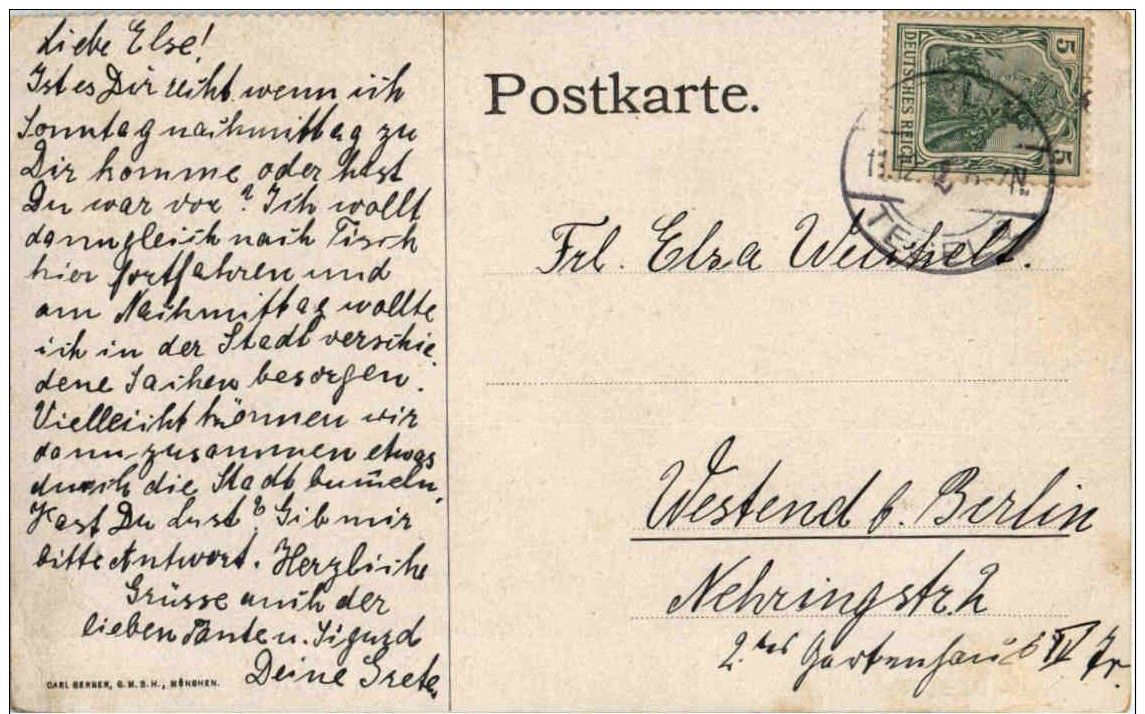 Liebe Else!
Ist es Dir recht wenn ich
Sonntag nachmittag zu
Dir komme oder hast
Du war vor? Ich wollt
dann gleich nach Tisch
hier fortfahren und
am Nachmittag wollte
ich in der Stadt verschie
dene Sachen besorgen.
Vielleicht können wir
dann zusammen etwas
durch die Stadt bum̅eln,
Hast Du Lust? Gib mir
bitte Antwort. Herzliche
Grüsse auch der
lieben Tante u. Sigurd
Deine Grete.
CARL GERBER, G.M.B.H., MÜNCHEN.
Postkarte.
DEUTSCHES REICH
5 5
Frl. Elsa Weichelt.
Westend b. Berlin
Nehringstr. 2
2.tes Gartenhaus IV Tr.